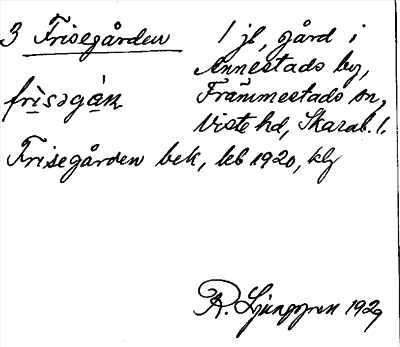 3 Frisegården
1 jl, gård i
Annestads by,
Främmestads sn,
Viste hd, Skarab. l.
frìsəgàṇ
Frisegården bek, leb 1920, kly
R. Ljunggren 1929